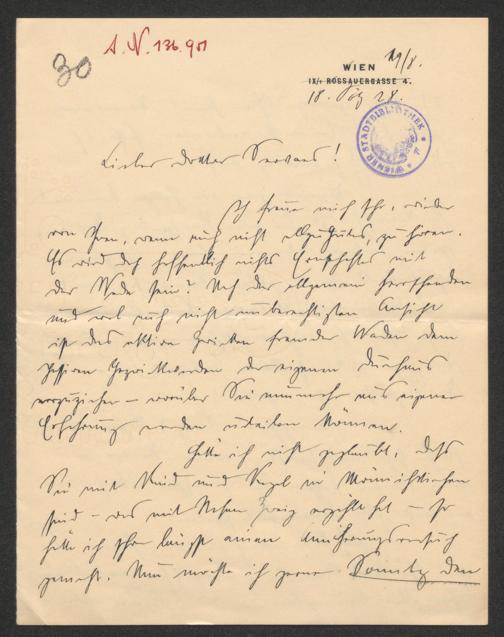 A.N. 136.901
30
WIEN 19/8.
IX/1 ROSSAUERGASSE 4.
18. 28.
WIENER STADTBIBLIOTHEK
Lieber Doktor Servaes!
Ich freue mich sehr, wieder
von Ihnen, wenn auch nicht allzu Gutes, zu hören.
Es wird doch hoffentlich nichts Ernsthaftes mit
der Wade sein? Nach der allgemein herrschenden
und wol auch nicht unberechtigten Ansicht
ist das aktive Zwicken fremder Waden dem
passiven Gezwicktwerden der eigenen durchaus
vorzuziehen – worüber Sie nunmehr aus eigener
Erfahrung werden urteilen können.
Hätte ich nicht geglaubt, daß
Sie mit Kind und Kegel in Mönichkirchen
sind – was mir Stefan Zweig erzählt hat – so
hätte ich schon längst einen Annäherungsversuch
gemacht. Nun möchte ich gerne Sonntag den